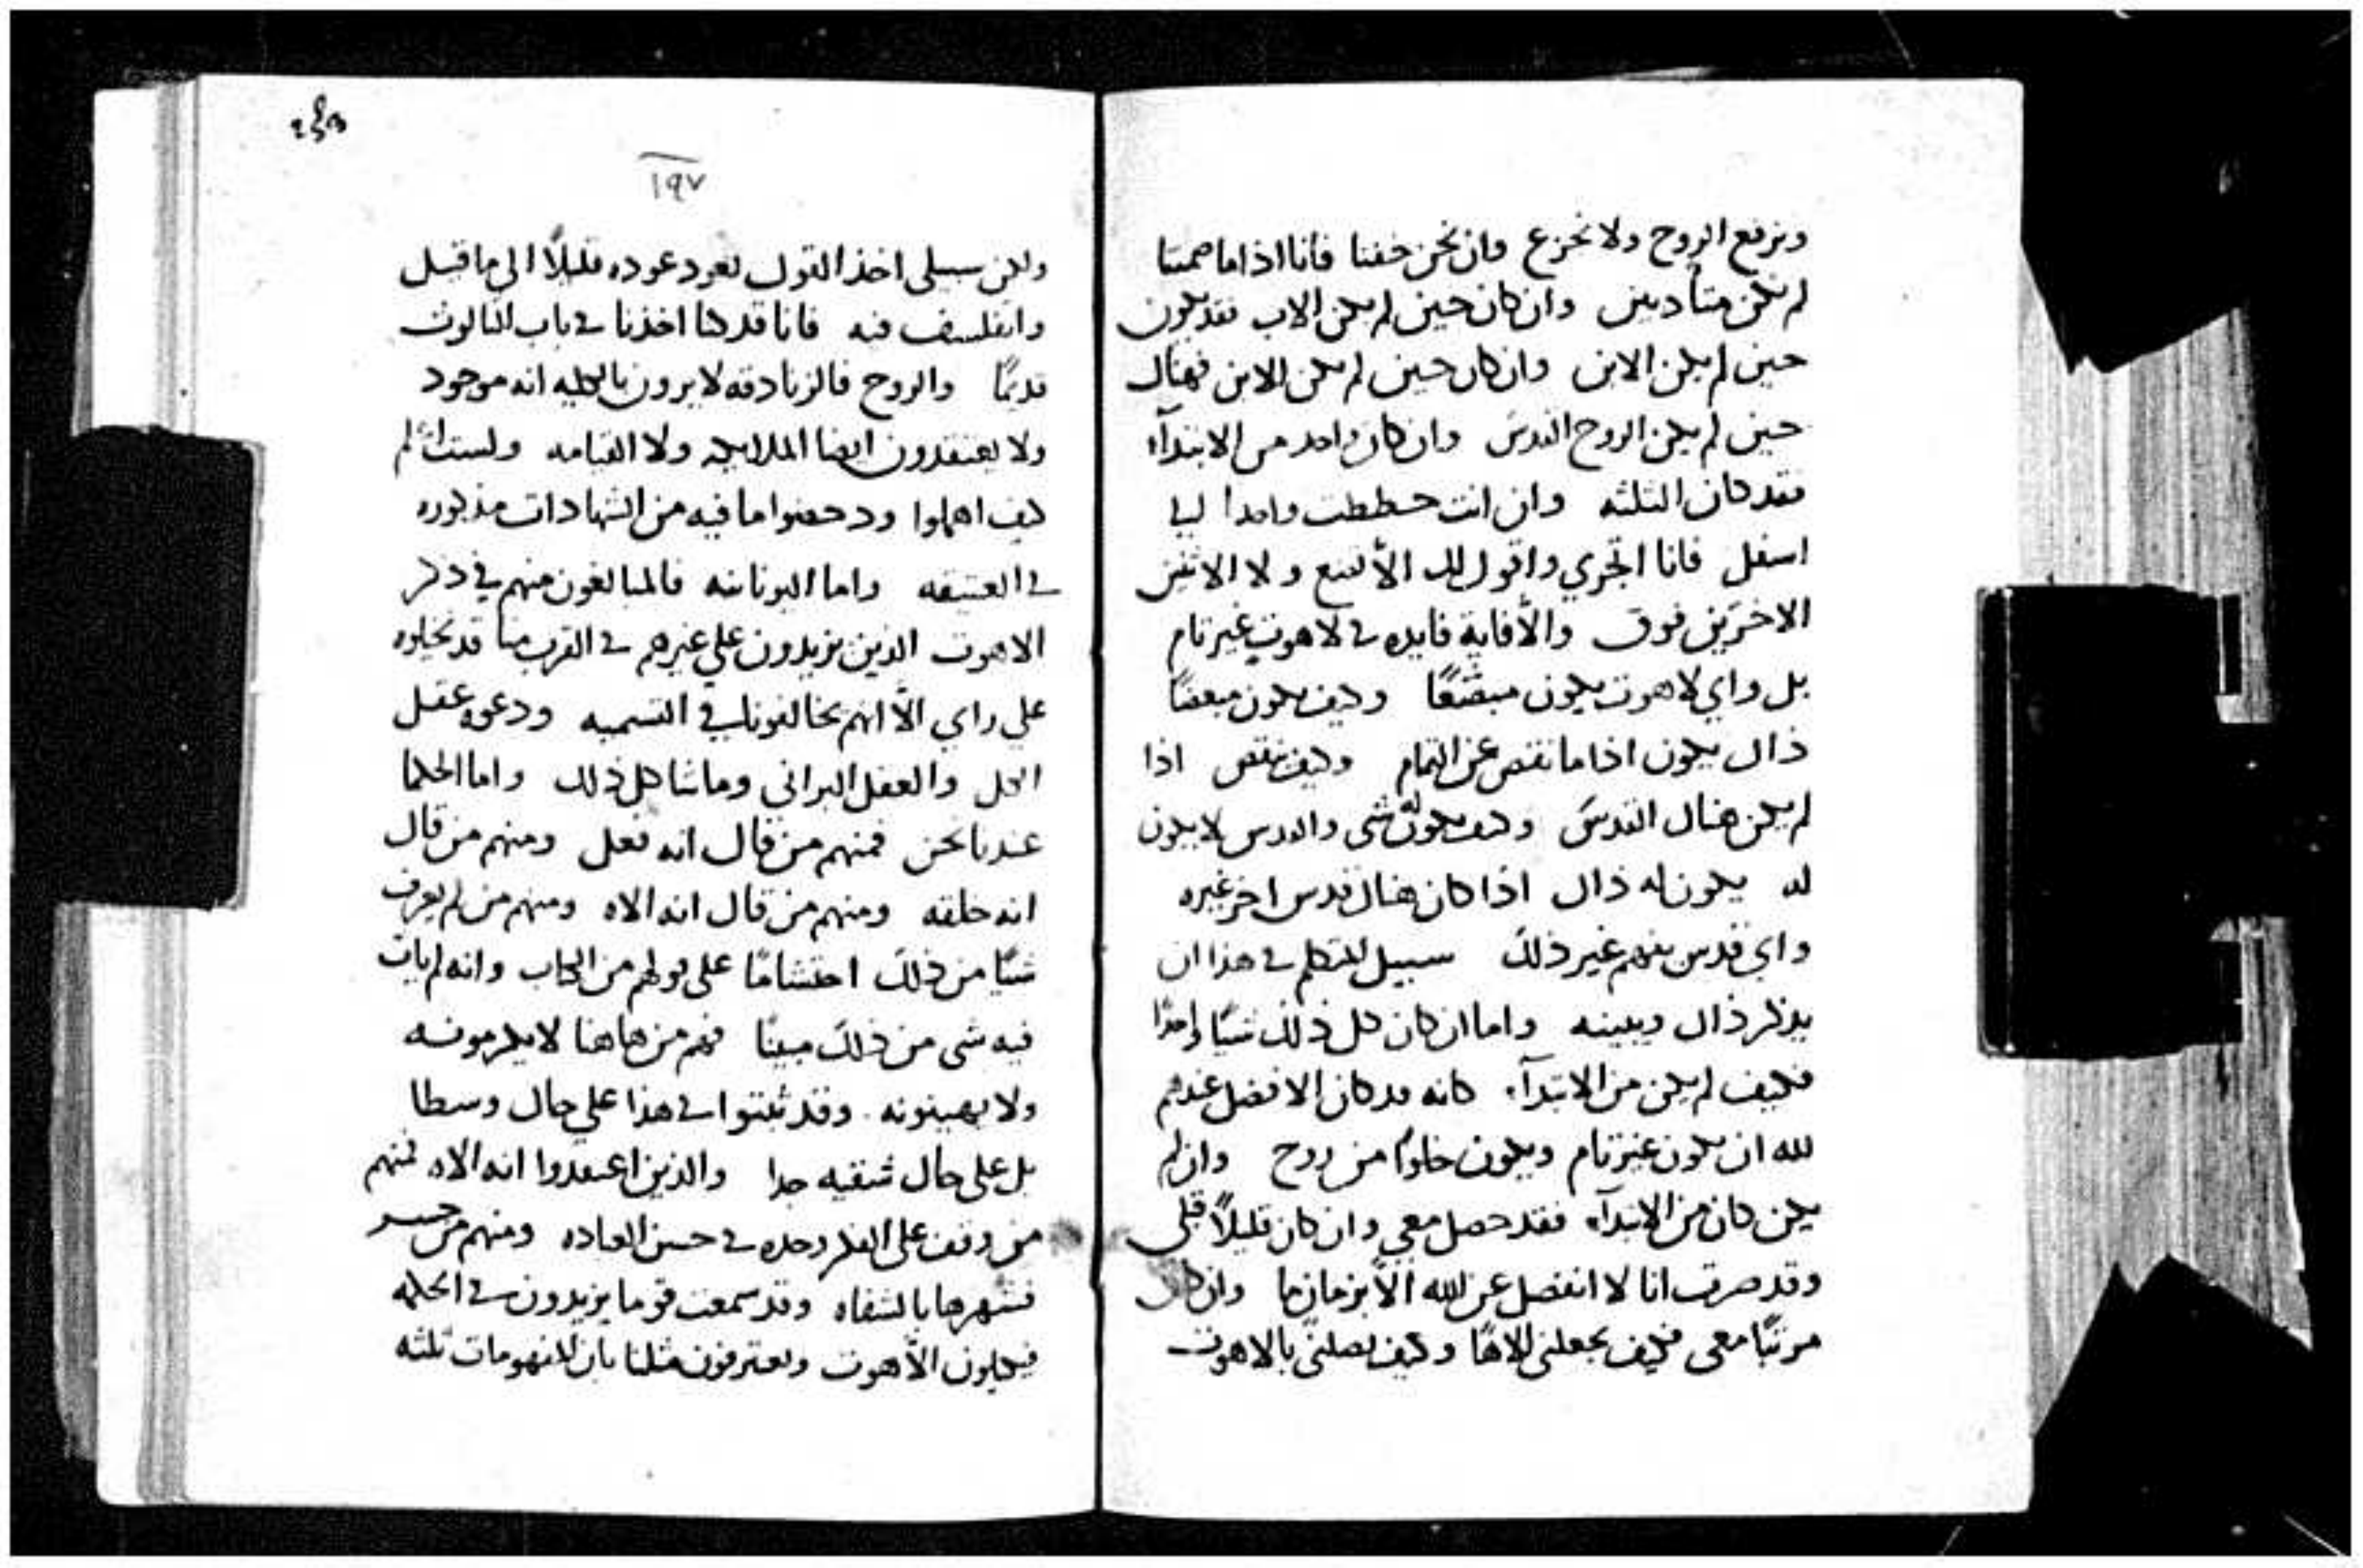 ونرفع الروح ولا نجزع وان نحن خفنا فانا اذا ما صمتنا
لم نكن متأديين وان كان حين لم يكن الاب فقد يكون
حين لم يكن الابن وان كان حين لم يكن الابن فهناك
حين لم يكن الروح القدس وان كان واحد من الابتدآء
فقد كان الثلثه وان انت حططت واحدا الي
اسفل فانا اتجري واقول لك الا تضع ولا الاثنين
الاخرين فوق والا فاية فايده في لاهوت غير تام
بل واي لاهوت يكون مبضعًا وكيف يكون مبعضًا
ذاك يكون اذا ما نقص عن التمام وكيف ينقص اذا
لم يكن هناك القدس وكيف يكون له شي والقدس لا يكون
له يكون له ذاك اذا كان هناك قدس اخر غيره
واي قدس يفهم غير ذلك سبيل المتكلم في هذا ان
يذكر ذاك ويبينه واما ان كان كل ذلك شيًا واحدًا
فكيف لم يكن من الابتدآء كانه قد كان الافضل عندهم
لله ان يكون غير تام ويكون خلوًا من روح وان لم
يكن كان من الابتدآء فقد حصل معي وان كان قليلاً قبلي
وقد صرت انا لا انفصل عن الله الا بزمان ما وان كان
مرتبًا معي فكيف يجعلني الاهًا وكيف يصلني بالاهوت
١٩٧
ولكن سبيلي اخذ القول نعود عوده قليلاً الي ما قبل
واتفلسف فيه فانا قد كنا اخذنا في باب الثالوث
قديمًا والروح فالزنادقه لا يرون بالكليه انه موجود
ولا يعتقدون ايضا الملايكه ولا القيامه ولست اعلم
كيف اهملوا ودحضوا ما فيه من الشهادات مذكوره
في العتيقه واما اليونانيه فالمبالغون منهم في ذكر
الاهوت الذين يزيدون علي غيرهم في القرب منا قد تخيلوه
علي راي الا انهم يخالفونا في التسميه ودعوه عقل
الكل والعقل البراني وما شاكل ذلك واما الحكما
عندنا نحن فمنهم من قال انه فعل ومنهم من قال
انه خلقه ومنهم من قال انه الاه ومنهم من لم يعرف
شيًا من ذلك احتشامًا علي قولهم من الكتاب وانه لم يات
فيه شي من ذلك مبينًا فهم من هاهنا لا يكرمونه
ولا يهينونه وقد ثبتوا في هذا علي حال وسطا
بل علي حال شقيه جدا والذين اعتقدوا انه الاه فمنهم
من وقف علي الفكر وحده في حسن العباده ومنهم من جسر
فشهرها بالشفاه وقد سمعت قوما يزيدون في الحكمه
فيكيلون الاهوت ويعترفون مثلنا بان المفهومات ثلثه